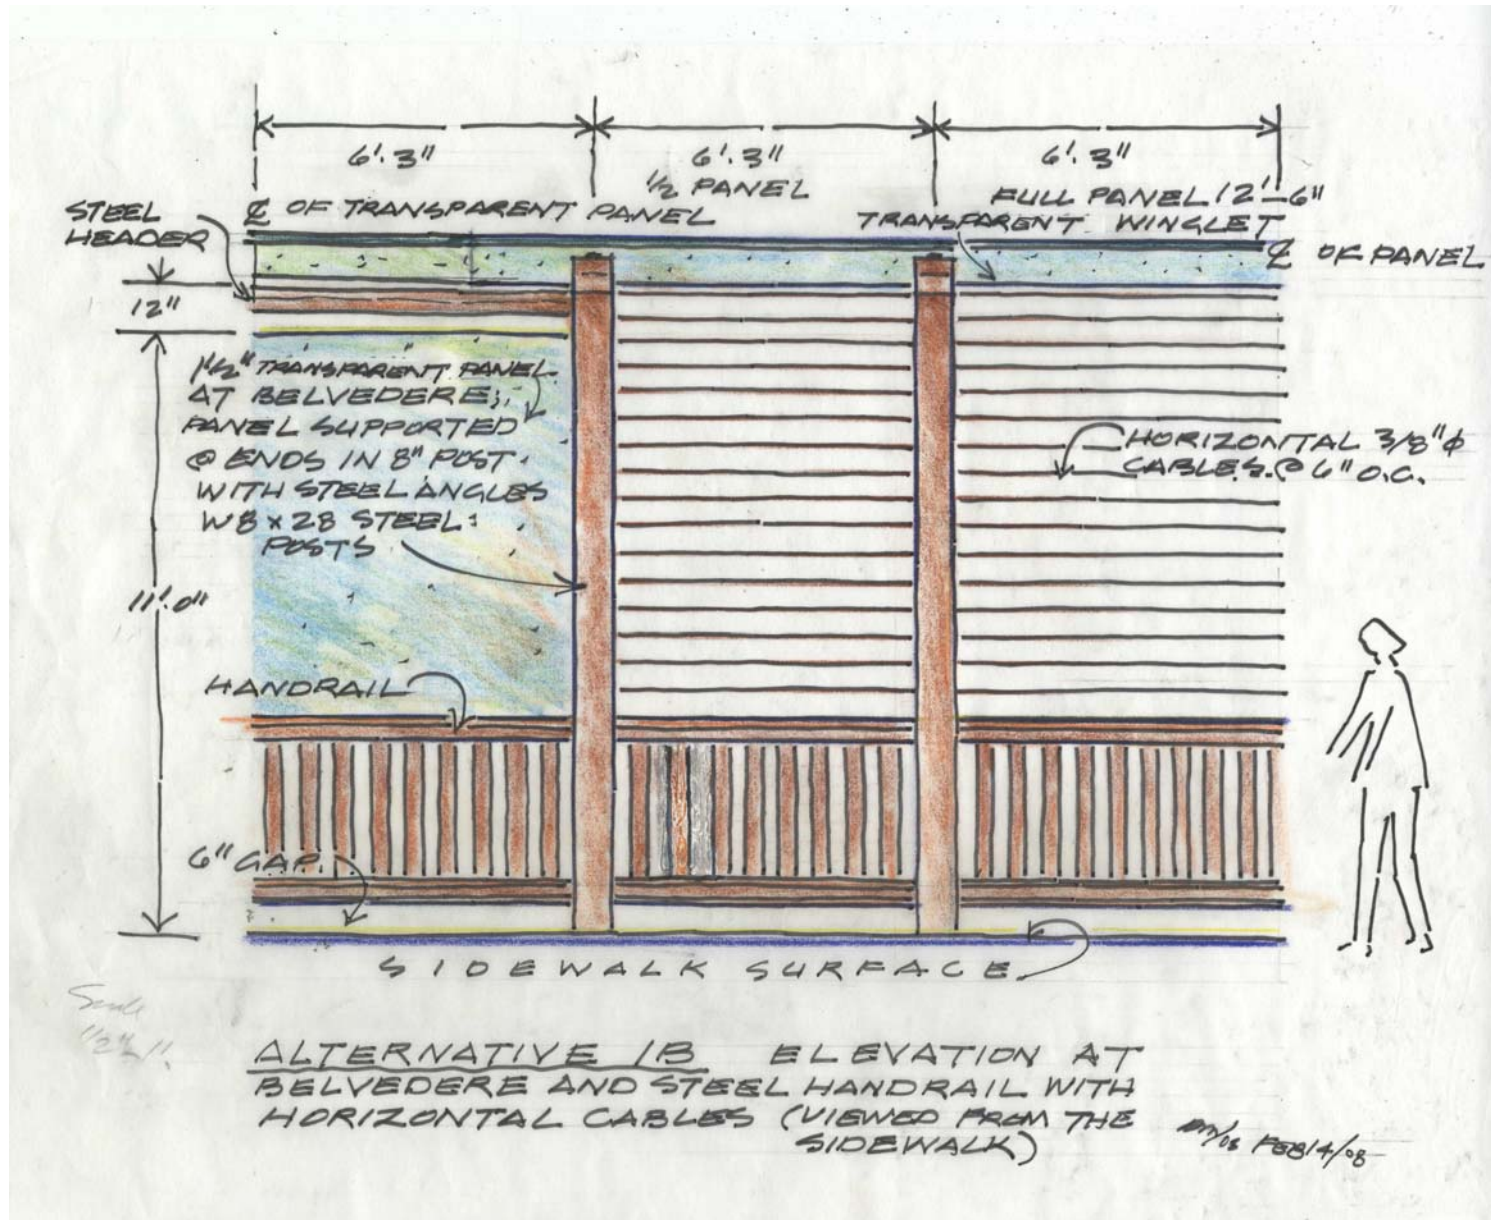 6'.3"
6'.3"
6'.3"
1/2 PANEL
FULL PANEL 12'-6"
STEEL
HEADER
℄ OF TRANSPARENT PANEL
TRANSPARENT WINGLET
℄ OF PANEL
12"
1 1/2" TRANSPARENT PANEL
AT BELVEDERE;
PANEL SUPPORTED
@ ENDS IN 8" POST
WITH STEEL ANGLES
W8 x 28 STEEL
POSTS
HORIZONTAL 3/8" ϕ
CABLES @ 6" O.C.
11'.0"
HANDRAIL
6" GAP
SIDEWALK SURFACE
Scale
ALTERNATIVE 1B ELEVATION AT
BELVEDERE AND STEEL HANDRAIL WITH
HORIZONTAL CABLES (VIEWED FROM THE
SIDEWALK)
FEB 14/08